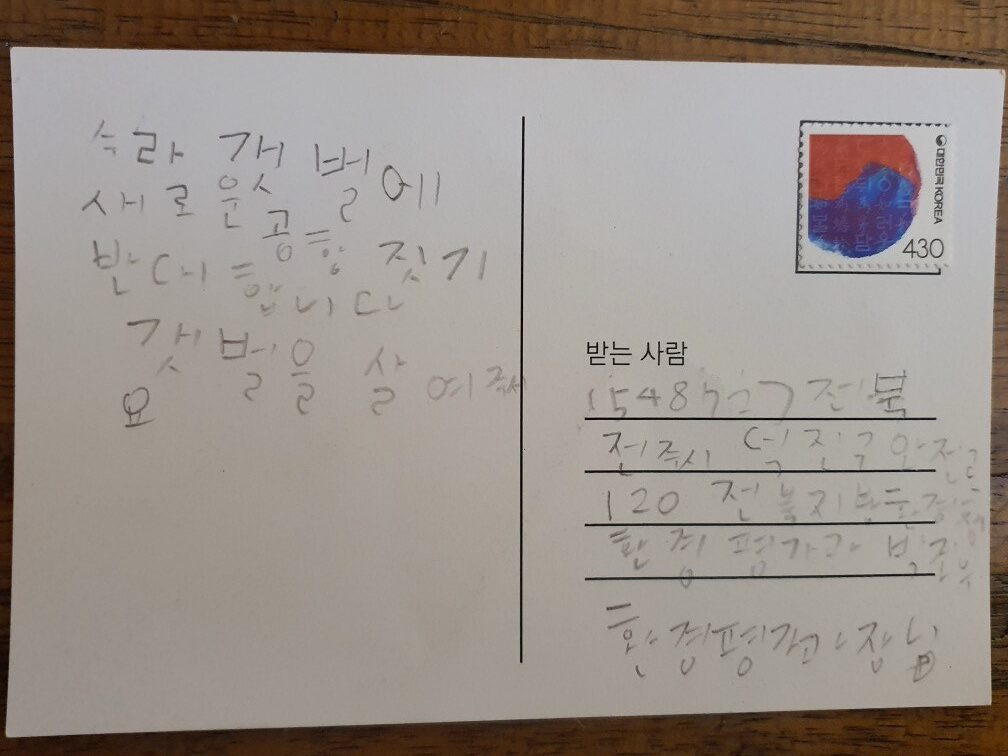 수라 갯벌에
새로운 공항 짓기
반대합니다
갯벌을 살여주세
요
대한민국 KOREA
430
받는 사람
전북
전주시 덕진구 안전로
120 전북지방환경청
환경평가과
환경평가과장님